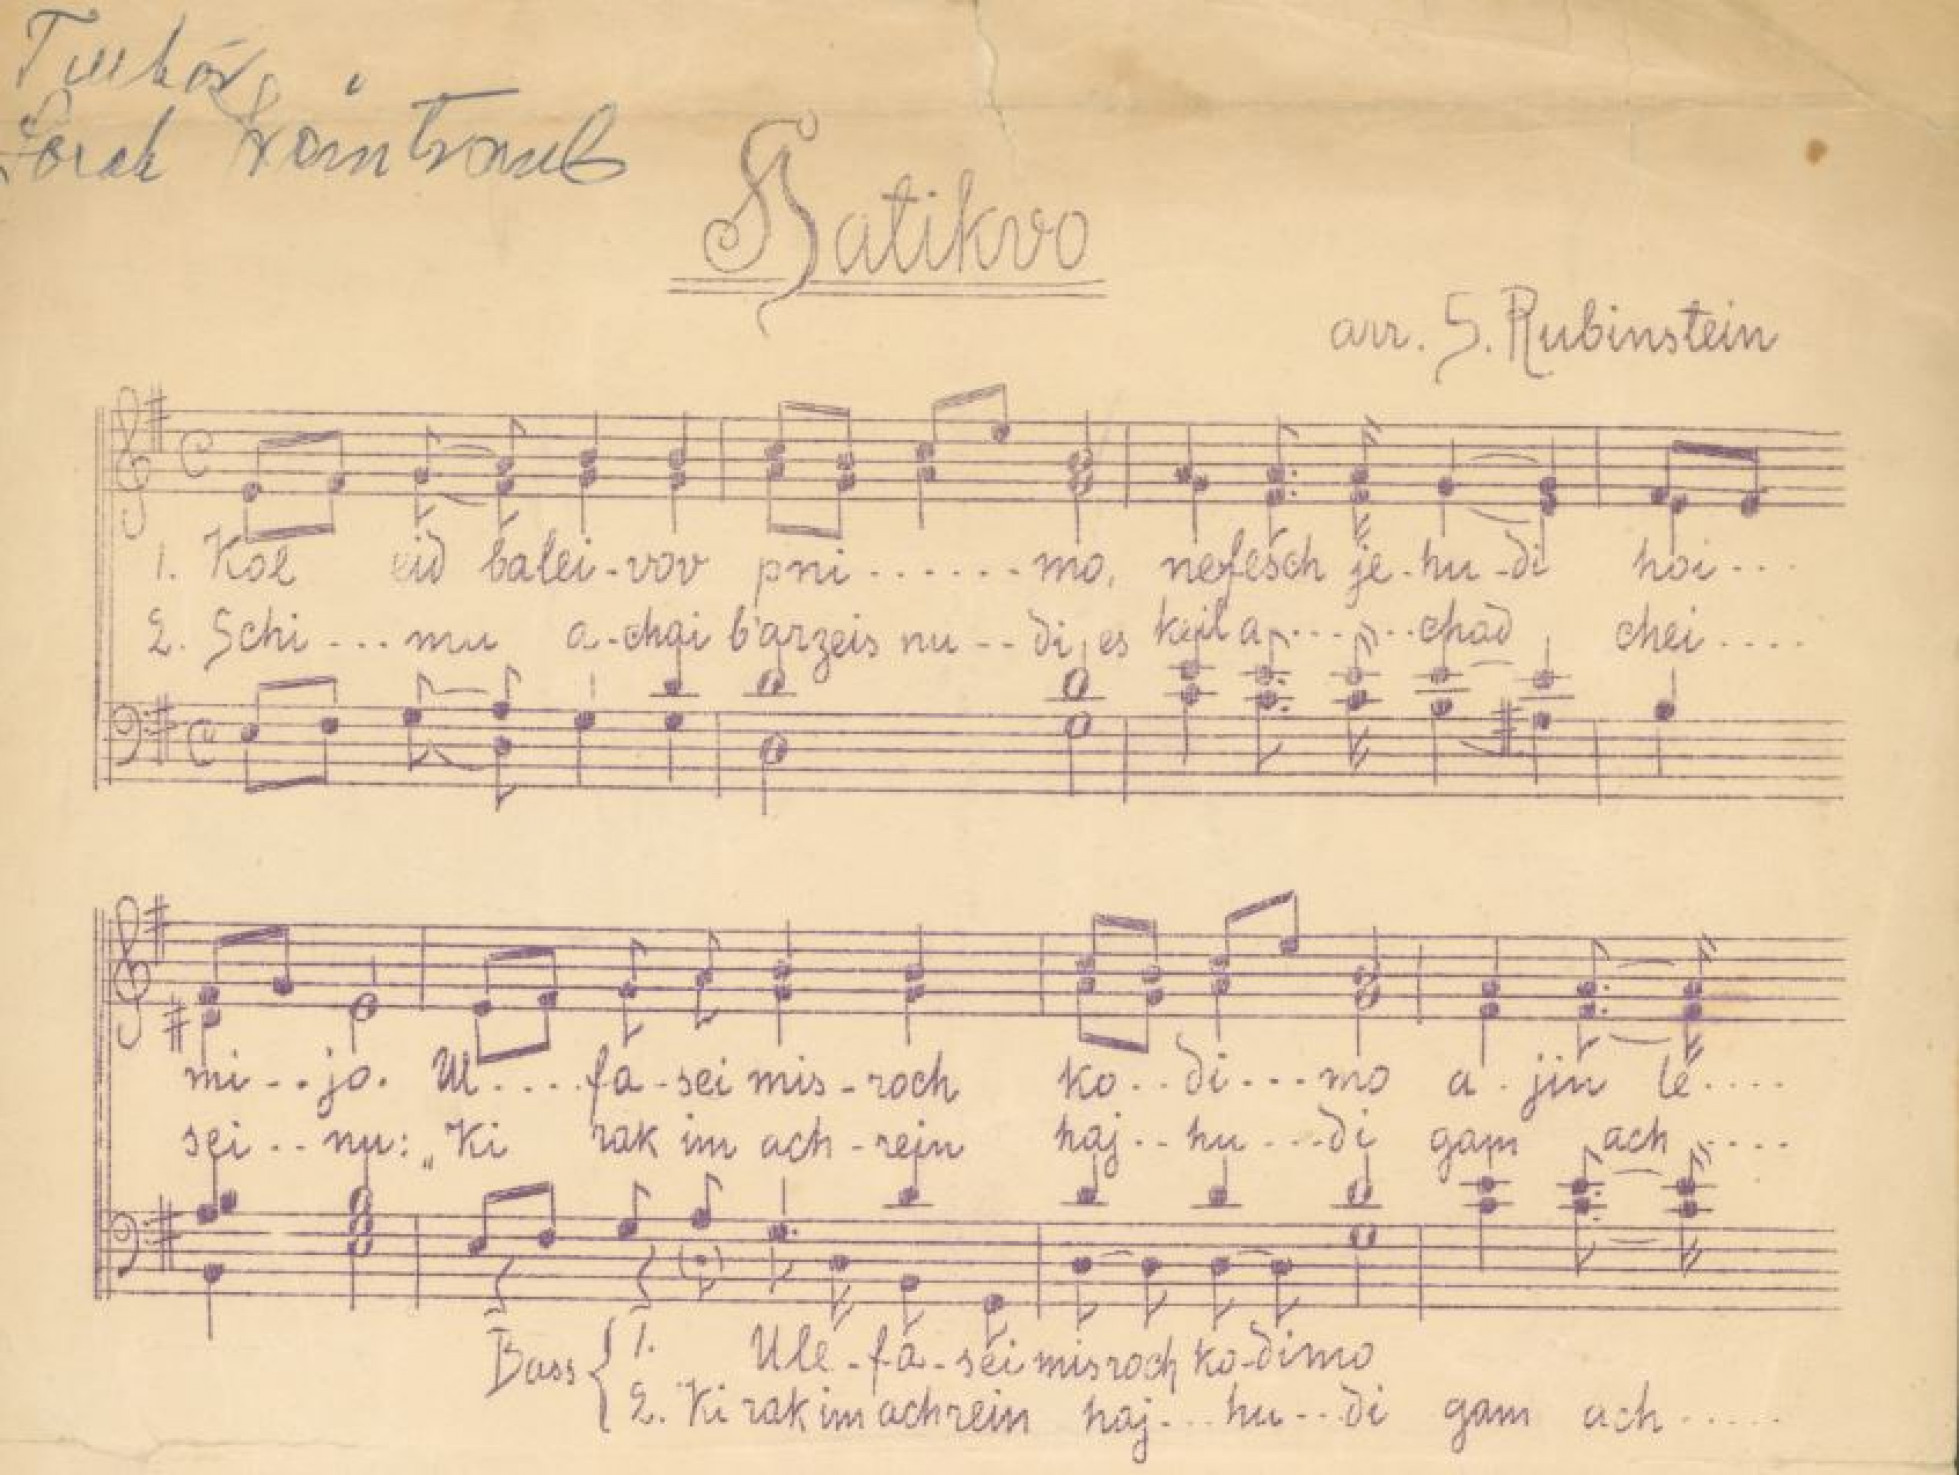 Hatikvo
arr. S. Rubinstein
1. Kol eid balei-vov pni......mo, nefesch je-hu-di hoi...
2. Schi...mu a-chai b'arzeis nu--di, es keil a.....chad chei....
mi-..jo. Ul....fa-sei mis-roch ko..di---mo a-jin le....
sei..nu: „Ki rak im ach-rein haj..hu...di gam ach.....
Bass { 1. Ule-fa-sei misroch ko-dimo
2. Ki rak im achrein haj...hu...di gam ach.....